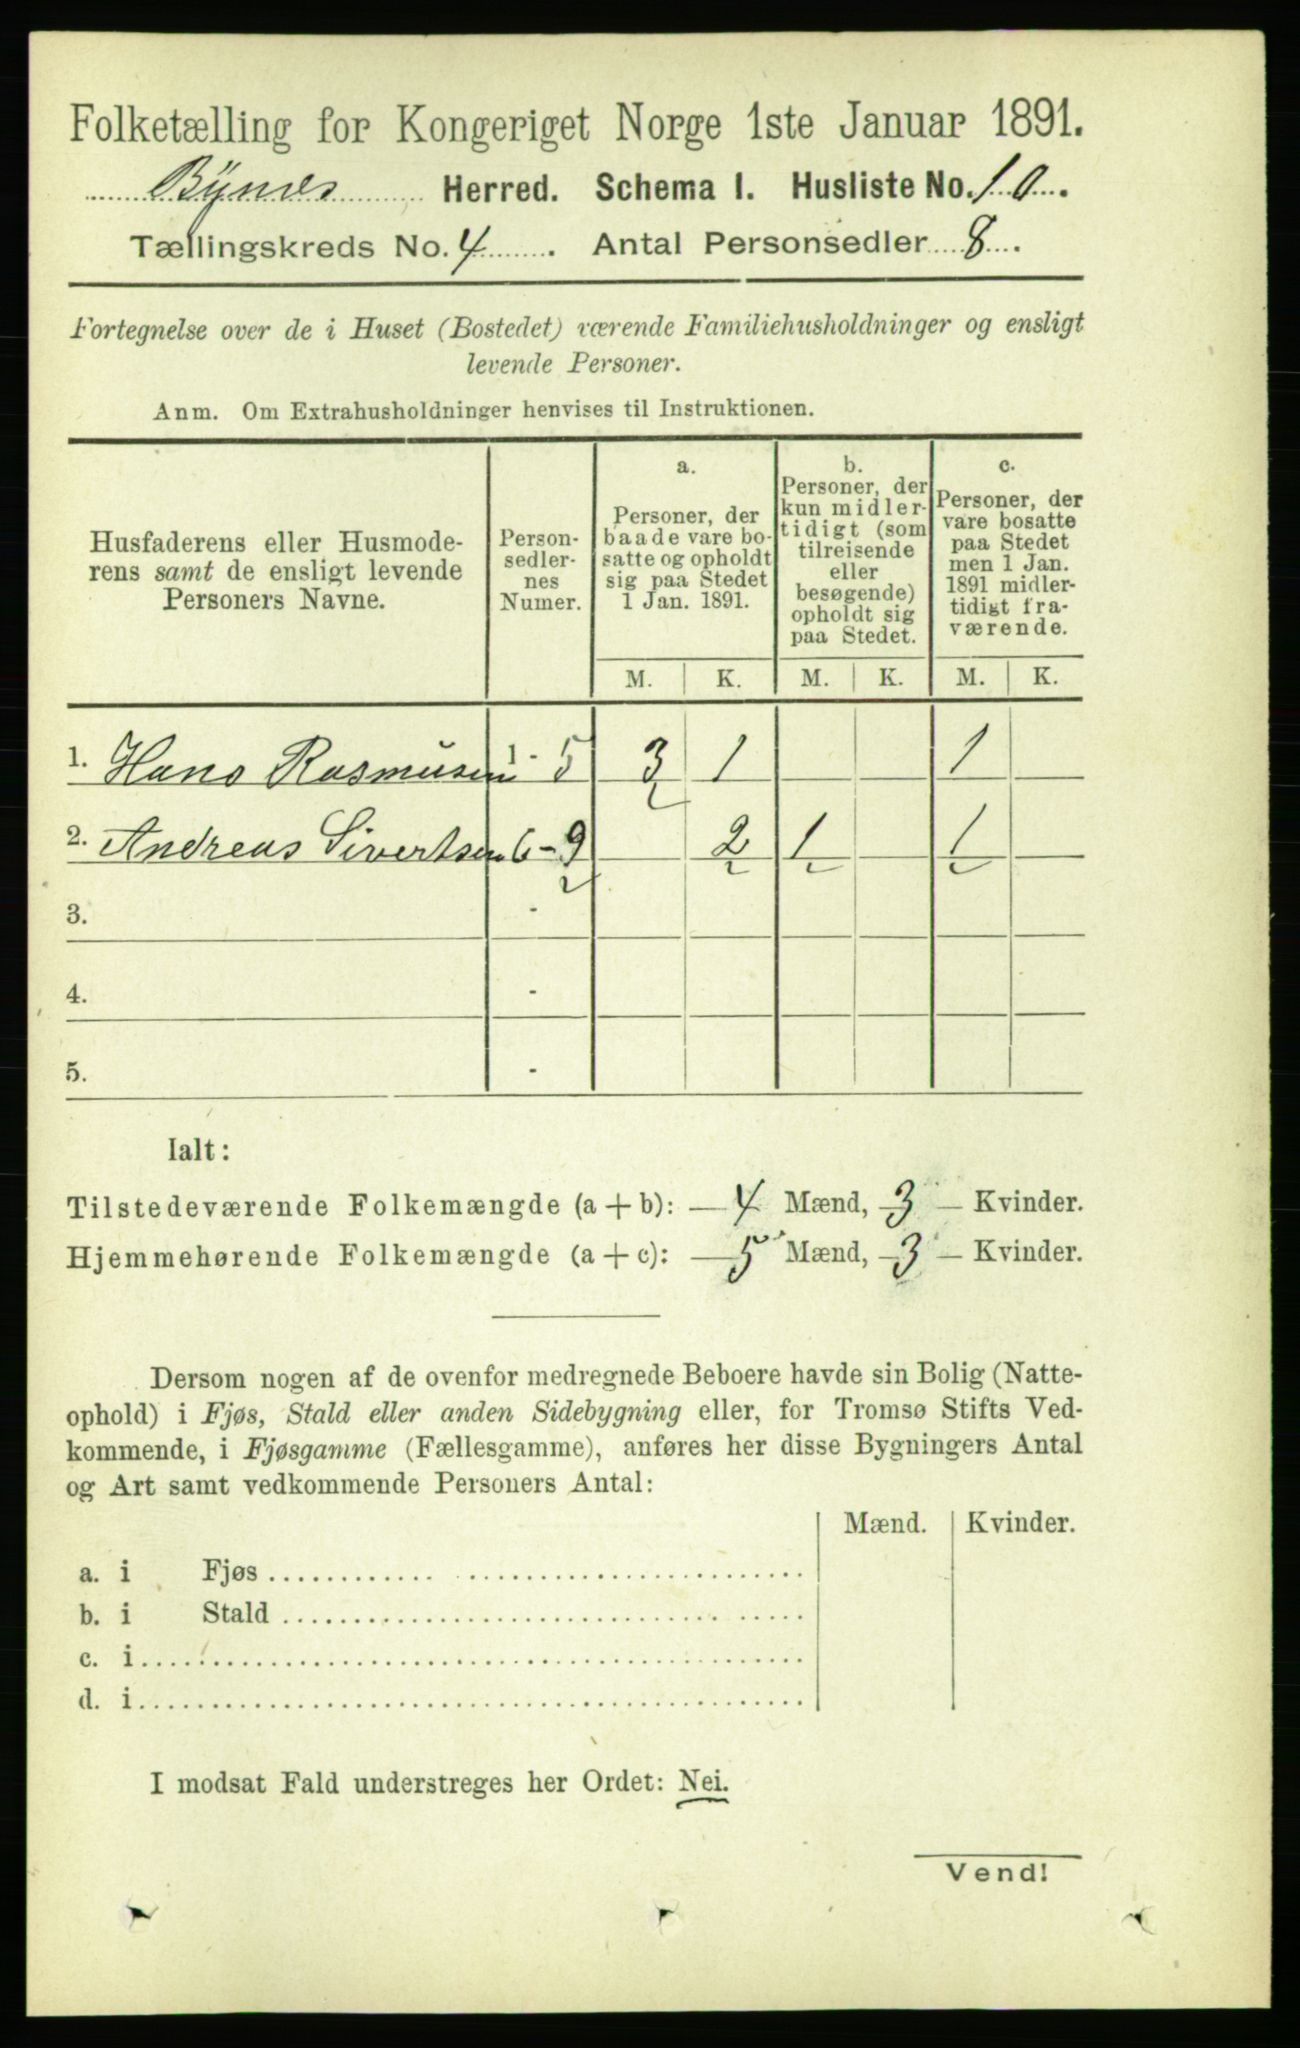 Folketælling for Kongeriget Norge 1ste Januar 1891.
Bÿnes Herred. Schema I. Husliste No. 10.
Tællingskreds No. 4. Antal Personsedler 8.
Fortegnelse over de i Huset (Bostedet) værende Familiehusholdninger og ensligt
levende Personer.
Anm. Om Extrahusholdninger henvises til Instruktionen.
Husfaderens eller Husmode-
rens samt de ensligt levende
Personers Navne.
Person-
sedler-
nes
Numer.
a.
Personer, der
baade vare bo-
satte og opholdt
sig paa Stedet
1 Jan. 1891.
b.
Personer, der
kun midler-
tidigt (som
tilreisende
eller
besøgende)
opholdt sig
paa Stedet.
c.
Personer, der
vare bosatte
paa Stedet
men 1 Jan.
1891 midler-
tidigt fra-
værende.
M. K. M. K. M. K.
1. Hans Rasmusen 1 - 5 3 1 1
2. Andreas Sivertsen 6 - 9 2 1 1
3. -
4. -
5. -
Ialt:
Tilstedeværende Folkemængde (a + b): — 4 Mænd, — 3 — Kvinder.
Hjemmehørende Folkemængde (a + c): — 5 Mænd, — 3 — Kvinder.
Dersom nogen af de ovenfor medregnede Beboere havde sin Bolig (Natte-
ophold) i Fjøs, Stald eller anden Sidebygning eller, for Tromsø Stifts Ved-
kommende, i Fjøsgamme (Fællesgamme), anføres her disse Bygningers Antal
og Art samt vedkommende Personers Antal:
Mænd. Kvinder.
a. i Fjøs
b. i Stald
c. i
d. i
I modsat Fald understreges her Ordet: Nei.
Vend!